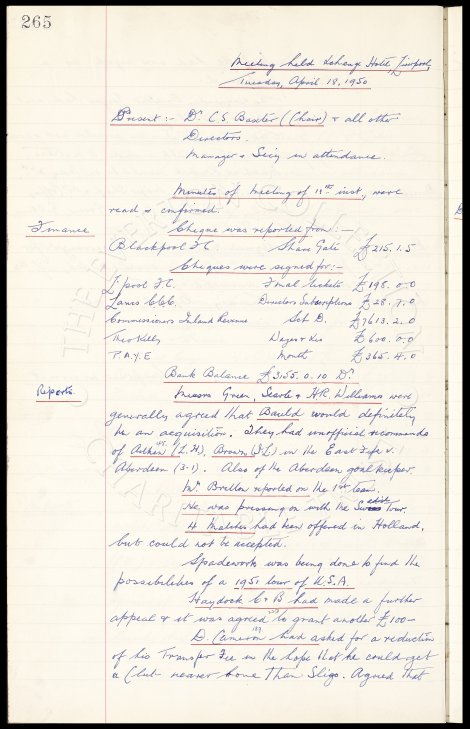 265
Meeting held Exchange Hotel, Liverpool,
Tuesday, April 18, 1950
Present :- Dr C.S. Baxter (Chair) & all other
Directors.
Manager & Secy in attendance.
Minutes of Meeting of 12th inst., were
read & confirmed.
Finance
Cheque was reported from :-
Blackpool F.C. Share Gate £215.1.5
Cheques were signed for :-
L'pool F.C. Final tickets £198.0.0
Lancs C.C.C. Directors Subscriptions £28.7.0
Commissioners Inland Revenue Sch D. £7613.2.0
Theo Kelly Wages & Exs £600.0.0
P.A.Y.E Month £365.4.0
Bank Balance £3155.0.10 Dr
Reports.
Messrs Green, Searle & H.R. Williams were
generally agreed that Bauld would definitely
be an acquisition. They had unofficial recommends
of (L.H), Brown (I.L) in the East Fife v.
Aberdeen (3-1). Also of the Aberdeen goalkeeper.
Mr. Britton reported on the 1st team.
He was pressing on with the Tour.
4 Matches had been offered in Holland,
but could not be accepted.
Spadework was being done to find the
possibilities of a 1951 tour of U.S.A.
Haydock C & B had made a further
appeal & it was agreed to grant another £100-
D. Cameron had asked for a reduction
of his Transfer Fee in the hope that he could get
a Club nearer home than Sligo. Agreed that